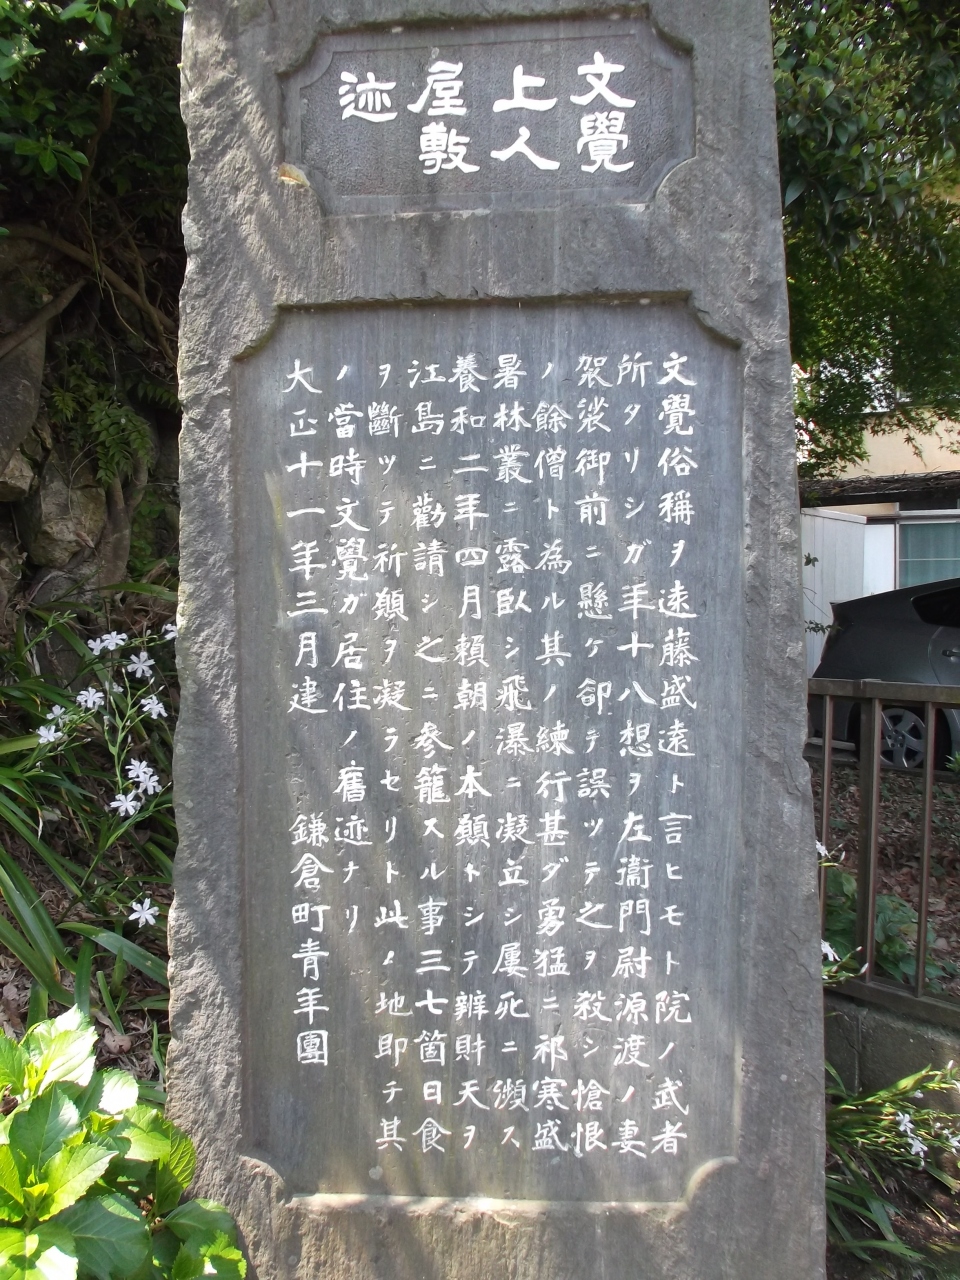 文覺
上人
屋敷
迹
文覺俗稱ヲ遠藤盛遠ト言ヒモト院ノ武者
所タリシガ年十八想ヲ左衞門尉源渡ノ妻
袈裟御前ニ懸ケ卻テ誤ツテ之ヲ殺シ愴恨
ノ餘僧ト為ル其ノ練行甚ダ勇猛ニ祁寒盛
暑林叢ニ露臥シ飛瀑ニ凝立シ屢死ニ瀕ス
養和二年四月頼朝ノ本願トシテ辨財天ヲ
江島ニ勸請シ之ニ參籠スル事三七箇日食
ヲ斷ツテ祈願ヲ凝ラセリト此ノ地即チ其
ノ當時文覺ガ居住ノ舊迹ナリ
大正十一年三月建 鎌倉町青年團